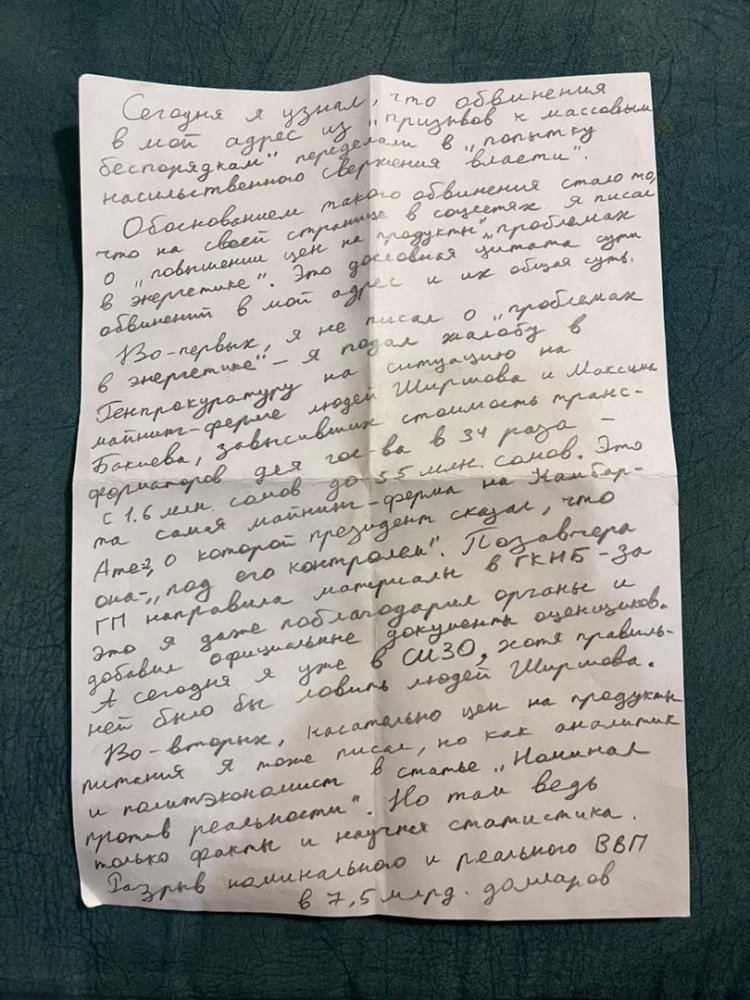 Сегодня я узнал, что обвинения
в мой адрес из „призывов к массовым
беспорядкам" переделали в „попытку
насильственного свержения власти".
Обоснованием такого обвинения стало то,
что на своей странице в соцсетях я писал
о „повышении цен на продукты", „проблемах
в энергетике". Это дословная цитата сути
обвинений в мой адрес и их общая суть.
Во-первых, я не писал о „проблемах
в энергетике" – я подал жалобу в
Генпрокуратуру на ситуацию на
майнинг-ферме людей Ширшова и Максима
Бакиева, завысивших стоимость транс-
форматоров для гос-ва в 34 раза –
с 1.6 млн. сомов до 55 млн. сомов. Это
та самая майнинг-ферма на Камбар-
Ате-2, о которой президент сказал, что
она – „под его контролем". Позавчера
ГП направила материалы в ГКНБ – за
это я даже поблагодарил органы и
добавил официальные документы оценщиков.
А сегодня я уже в СИЗО, хотя правиль-
ней было бы ловить людей Ширшова.
Во-вторых, касательно цен на продукты
питания я тоже писал, но как аналитик
и политэкономист в статье „Номинал
против реальности". Но там ведь
только факты и научная статистика.
Разрыв номинального и реального ВВП
в 7,5 млрд. долларов